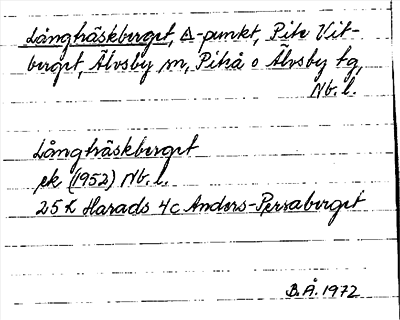 Långträskberget, Δ-punkt, Pite Vit-
berget, Älvsby sn, Piteå o Älvsby tg,
Nb. l.
Långträskberget
ek (1952) Nb. l.
25 K Harads 4c Anders-Persaberget
B.Å. 1972